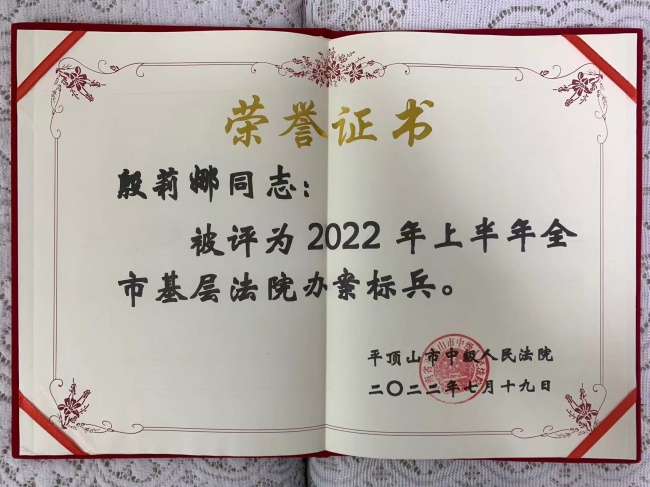 荣誉证书
殷莉娜同志：
被评为2022年上半年全
市基层法院办案标兵。
平顶山市中级人民法院
二〇二二年七月十九日